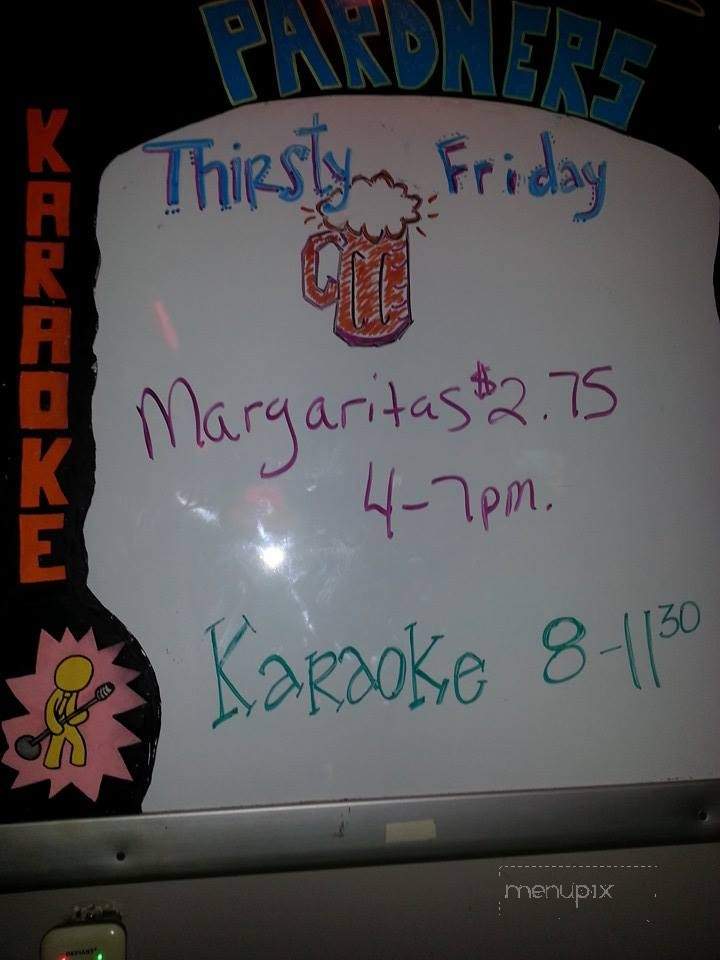 PARDNERS
KARAOKE
Thirsty Friday
Margaritas $2.75
4-7pm.
Karaoke 8-11 30
menupix
DEFIANT